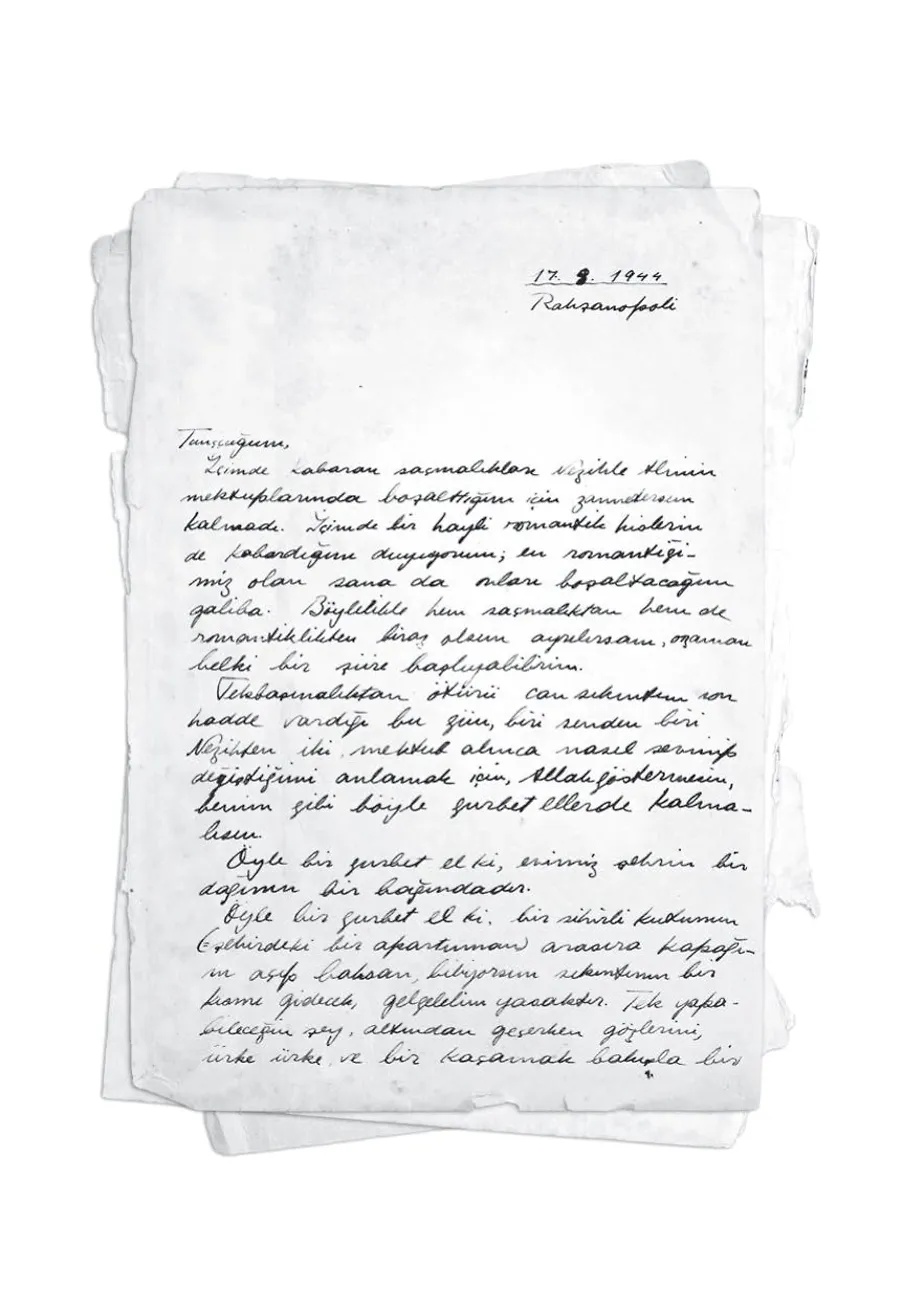 17. 9. 1944
Rahşanopoli
Tunççuğum,
İçimde kabaran saçmalıkları Nezihle
mektuplarında boşalttığım için zannedersem
kalmadı. İçimde bir hayli romantik hislerin
de kabardığını duyuyorum; en romantiği-
miz olan sana da onları boşaltacağım
galiba. Böylelikle hem saçmalıktan hem de
romantiklikten biraz olsun ayrılırsam, ozaman
belki bir şiire başlıyabilirim.
Tekbaşınalıktan ötürü can sıkıntım son
hadde vardığı bu gün, biri senden biri
Nezihten iki mektub alınca nasıl sevinip
değiştiğimi anlamak için, Allah göstermesin,
benim gibi böyle gurbet ellerde kalma-
lısın.
Öyle bir gurbet el ki, evimiz şehrin bir
dağının bir bağındadır.
Öyle bir gurbet el ki, bir sihirli kutunun
(=şehirdeki bir apartıman) arasıra kapağı-
nı açıp baksan, biliyorsun sıkıntının bir
kısmı gidecek, gelgelelim yasaktır. Tek yapa-
bileceğin şey, altından geçerken gözlerini,
ürke ürke ve bir kaçamak bakışla bir